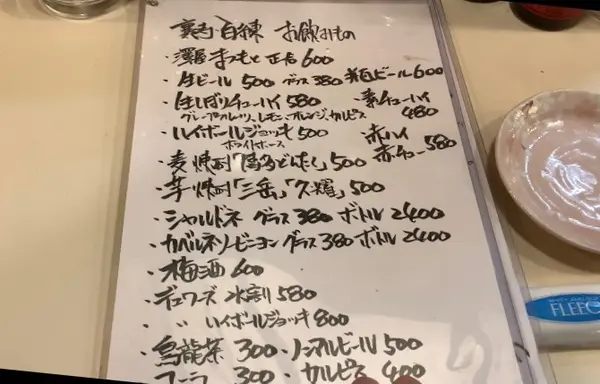 白練 お飲みもの
・澤屋まつもと 正宗 600
・生ビール 500 グラス 380 瓶ビール 600
・生しぼりチューハイ 580 ・素チューハイ 480
グレープフルーツ、レモン、オレンジ、カルピス
・ハイボールジョッキ 500 赤ハイ 赤チュー 580
ホワイトホース
・麦焼酎 500
・芋焼酎「三岳」「久耀」500
・シャルドネ グラス 380 ボトル 2400
・カベルネソービニヨン グラス 380 ボトル 2400
・梅酒 600
・デュワーズ 水割 580
・〃 ハイボールジョッキ 800
・烏龍茶 300 ・ノンアルビール 500
コーラ 300 ・カルピス 400
FLEE